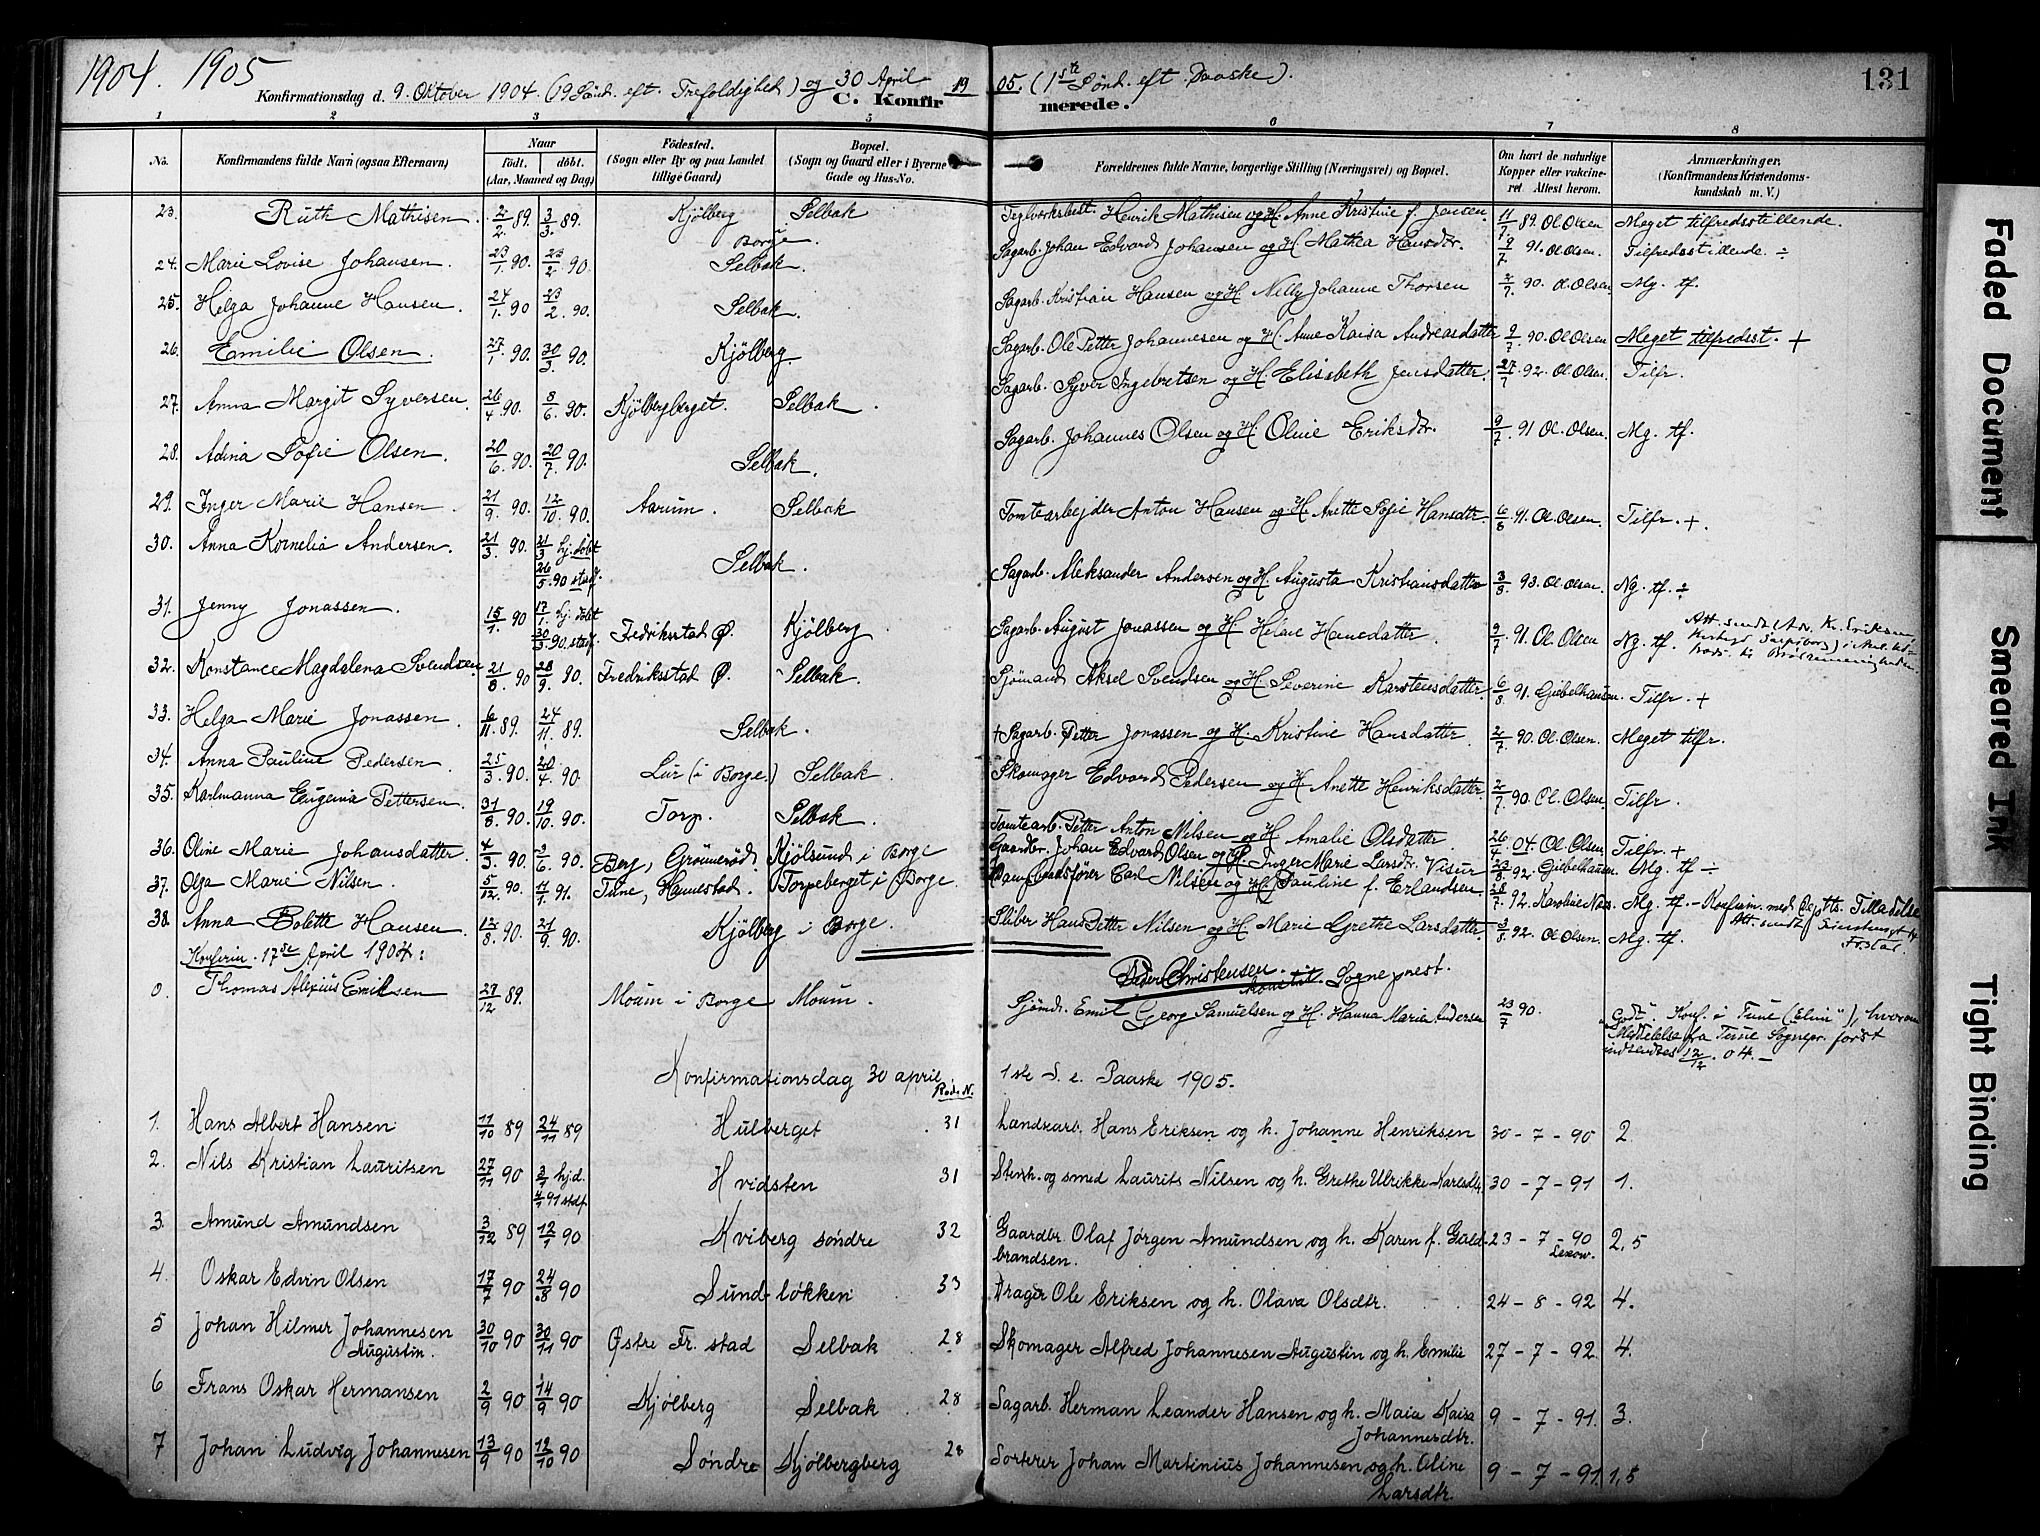 1904. 1905
Konfirmationsdag d. 9 Oktober 1904. (19 Sönd. eft. Trefoldighed) og 30 April 1905. (1ste Sönd. eft. Paaske).
C. Konfirmerede.
131
1 2 3 4 5 6 7 8
No. Konfirmandens fulde Navn (ogsaa Efternavn) Naar födt. döbt. (Aar, Maaned og Dag) Födested. (Sogn eller By og paa Landet tillige Gaard) Bopæl. (Sogn og Gaard eller i Byerne Gade og Hus-No. Forældrenes fulde Navne, borgerlige Stilling (Næringsvei) og Bopæl. Om havt de naturlige Kopper eller vakcineret. Attest herom. Anmærkninger. (Konfirmandens Kristendomskundskab m. V.)
23. Ruth Mathisen 2/2 89. 3/3 89. Kjölberg Borge. Selbak Teglverksbest. Henrik Mathisen og H. Anne Kristine f. Jensen 11/7 89. Ol Olsen Meget tilfredsstillende.
24. Marie Lovise Johansen. 23/1 90. 23/2 90. Selbak. Sagarb. Johan Edvard Johansen og H. Mathea Hansdtr. 9/7 91. Ol Olsen. Tilfredsstillende ÷
25. Helga Johanne Hansen. 24/1 90 23/2 90. Selbak. Sagarb. Kristian Hansen og H. Nelly Johanne Thorsen 2/7 90. Ol Olsen Mg. tf.
26. Emilie Olsen. 27/1 90. 30/3 90. Kjölberg. Sagarb. Ole Petter Johannesen og H. Anne Kaisa Andreasdatter 9/7 90. Ol Olsen Meget tilfredsst. +
27. Anna Margit Syversen. 26/4 90. 8/6 90. Kjölbergberget. Selbak. Sagarb. Syver Ingebretsen og H. Elisabeth Jensdatter. 27/7 92. Ol Olsen. Tilfr.
28. Adina Sofie Olsen. 20/6 90. 20/7 90. Selbak. Sagarb. Johannes Olsen og H. Oline Eriksdtr. 9/7 91 Ol. Olsen. Mg. tf.
29. Inger Marie Hansen. 21/9 90. 12/10 90. Aarum. Selbak Tomtearbejder Anton Hansen og H. Anette Sofie Hansdtr. 6/8 91. Ol. Olsen. Tilfr. +.
30. Anna Kornelia Andersen. 21/3 90. 21/3 hj. döbt 26/5 90 stadf. Selbak. Sagarb. Aleksander Andersen og H. Augusta Kristiansdatter 3/8 93. Ol Olsen. Ng. tf. ÷
31. Jenny Jonassen. 15/1 90 17/1 hj. döbt 30/3 90 stadf. Fredriksstad Ø. Kjölberg Sagarb. August Jonassen og H. Helene Hansdatter. 9/7 91. Ol Olsen Ng. tf.
32. Konstance Magdalena Svendsen. 21/8 90 28/9 90. Fredriksstad Ø. Selbak. Sjömand Aksel Svendsen og H. Severine Karstensdatter. 6/8 91. Giebelhausen. Tilfr. +
33. Helga Marie Jonassen 6/11 89. 24/11 89. Selbak. † Sagarb. Petter Jonassen og H. Kristine Hansdatter. 2/7 90. Ol. Olsen. Meget tilfr.
34. Anna Pauline Pedersen. 25/3 90. 20/4 90. Lur (i Borge.) Selbak. Skomager Edvard Pedersen og H. Anette Henriksdatter 2/7 90. Ol. Olsen. Tilfr.
35. Karlmanna Eugenia Pettersen. 31/8 90. 19/10 90. Torp. Selbak. Tomtearb. Petter Anton Nilsen og H. Amalie Olsdatter 26/4 04. Ol Olsen Tilfr. +
36. Oline Marie Johansdatter. 4/5 90. 3/6 90. Berg, Grönneröd. Kjölsund i Borge Gaardbr. Johan Edvard Olsen og H. Inger Marie Larsdtr. Visur 23/8 92. Giebelhausen. Mg. tf ÷
37. Olga Marie Nilsen. 5/12 90. 11/1 91. Tune, Hannestad. Torpeberget i Borge. Dampbaadsfører Carl Nilsen og H. Pauline f. Erlandsen 28/7 92. Karoline Næss. Mg. tf. - Konfirm. med Tilladelse
38. Anna Bolette Hansen. 12/8 90. 21/9 90. Kjölberg i Borge. Sliber Hans Petter Nilsen og H. Marie Grethe Larsdatter. 3/8 92. Ol Olsen. Mg. tf.
Peder Christensen.
Konst. Sogneprest.
Konfirm. 17de April 1904:
0. Thomas Alexius Emilsen 27/12 89. Moum i Borge Moum. Sjömd. Emil Georg Samuelsen og H. Hanna Maria Andersen 23/7 90. Godt. Konf. i Tune ("Elim"), hvorom Meddelelse fra Tune Sognepr. först indsendtes 12/12. 04. —
Konfirmationsdag 30 april 1ste S. e. Paaske 1905.
Rode N.
1. Hans Albert Hansen 11/10 89 24/11 89 Hulberget 31 Landearb. Hans Eriksen og h. Johanne Henriksen 30-7-90 2.
2. Nils Kristian Lauritsen 27/11 90 hjd. 91 stdf. Hvidsten 31 Stenh. og smed Laurits Nilsen og h. Grethe Ulrikke Karlsdtr. 30-7-91 1.
3. Amund Amundsen 3/12 89 12/1 90 Kviberg søndre 32 Gaardbr. Olaf Jørgen Amundsen og h. Karen f. Guldbrandsen. 23-7-90 Lexow. 2,5
4. Oskar Edvin Olsen 17/7 90 24/8 90 Sundløkken 33 Drager Ole Eriksen og h. Olava Olsdtr. 24-8-92 4.
5 Johan Hilmer Johannesen Augustin. 30/10 90 30/11 90 Østre Fr. stad Selbak 28 Skomager Alfred Johannesen Augustin og h. Emilie 27-7-92. 4.
6 Frans Oskar Hermansen 2/9 90 14/9 90 Kjølberg Selbak 28 Sagarb. Herman Leander Hansen og h. Maia Kaisa Johannesdtr. 9-7-91. 3.
7 Johan Ludvig Johannesen 13/9 90 12/10 90 Søndre Kjølbergberg 28 Sorterer Johan Martinius Johannesen og h. Oline Larsdtr. 9-7-91. 1,5
Faded Document
Smeared Ink
Tight Binding